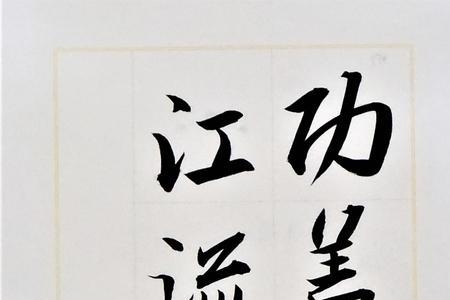 功盖
江流